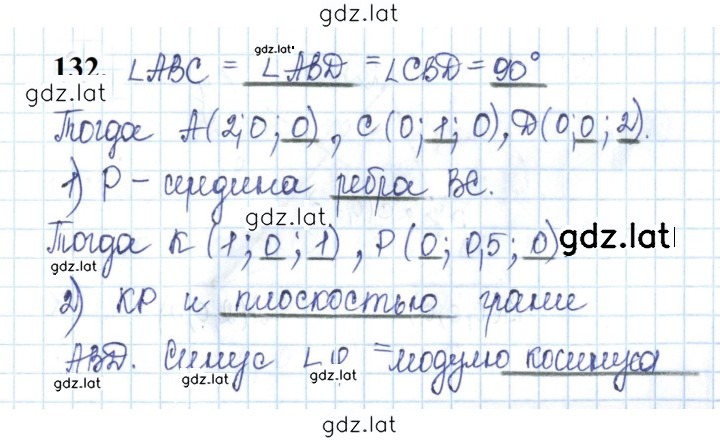 gdz.lat
gdz.lat
132. ∠ABC = ∠ABD = ∠CBD = 90°
gdz.lat
Тогда A(2;0;0), C(0;1;0), D(0;0;2).
1) P – середина ребра BC.
gdz.lat
Тогда K(1;0;1), P(0;0,5;0) gdz.lat
gdz.lat
2) KP и плоскостью грани
ABD. Синус ∠φ = модулю косинуса
gdz.lat
gdz.lat
gdz.lat